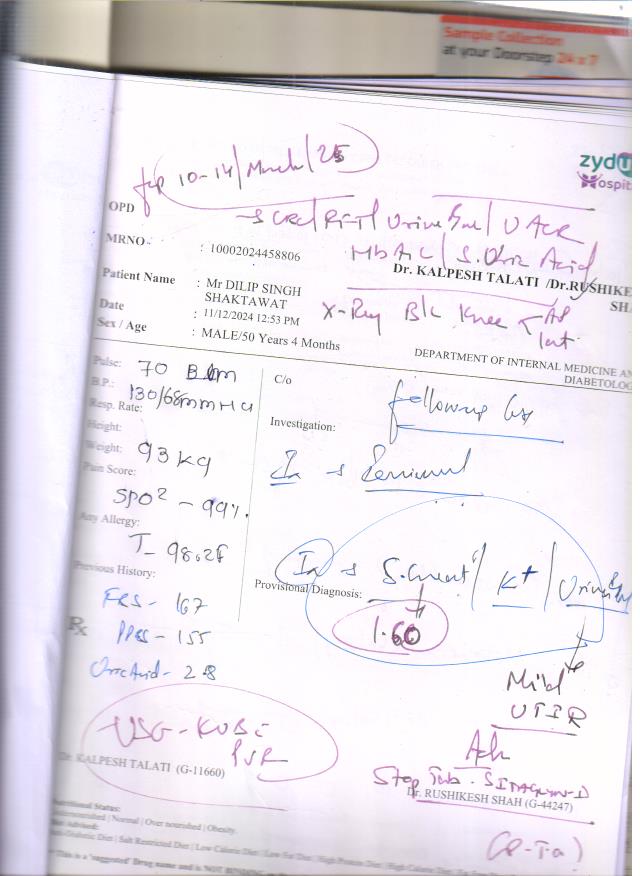 Sample Collection
at your Doorstep 24 x 7
10-14/March/25
OPD
CBC/RFT/Urine R/M/UACR
HbA1C/S. Uric Acid
MRNO : 10002024458806
Dr. KALPESH TALATI /Dr.RUSHIKE
SH
Patient Name : Mr DILIP SINGH
SHAKTAWAT
X-Ray B/L Knee AP
Lat
Date : 11/12/2024 12:53 PM
Sex / Age : MALE/50 Years 4 Months
DEPARTMENT OF INTERNAL MEDICINE AN
DIABETOLOG
Pulse: 70 BPM
C/o
B.P.: 130/68mmHg
Resp. Rate:
followup
Investigation:
Height:
Weight: 93 kg
Reviewed
Pain Score:
SPO2 - 99%.
Any Allergy:
T- 98.2F
Previous History:
S. Creat / K+ / Urine
Provisional Diagnosis:
1.60
FBS - 167
Rx
PPBS - 155
Uric Acid - 2.8
Mild
USG - KUB
PVR
Adv
Dr. KALPESH TALATI (G-11660)
Stop Tab. SITAGLYN-D
Dr. RUSHIKESH SHAH (G-44247)
Nutritional Status:
Undernourished | Normal | Over nourished | Obesity.
Diabetic Diet | Salt Restricted Diet | Low Calorie Diet | Low Fat Diet | High Protein Diet | High Calorie Diet
This is a 'suggested' Drug name and is NOT